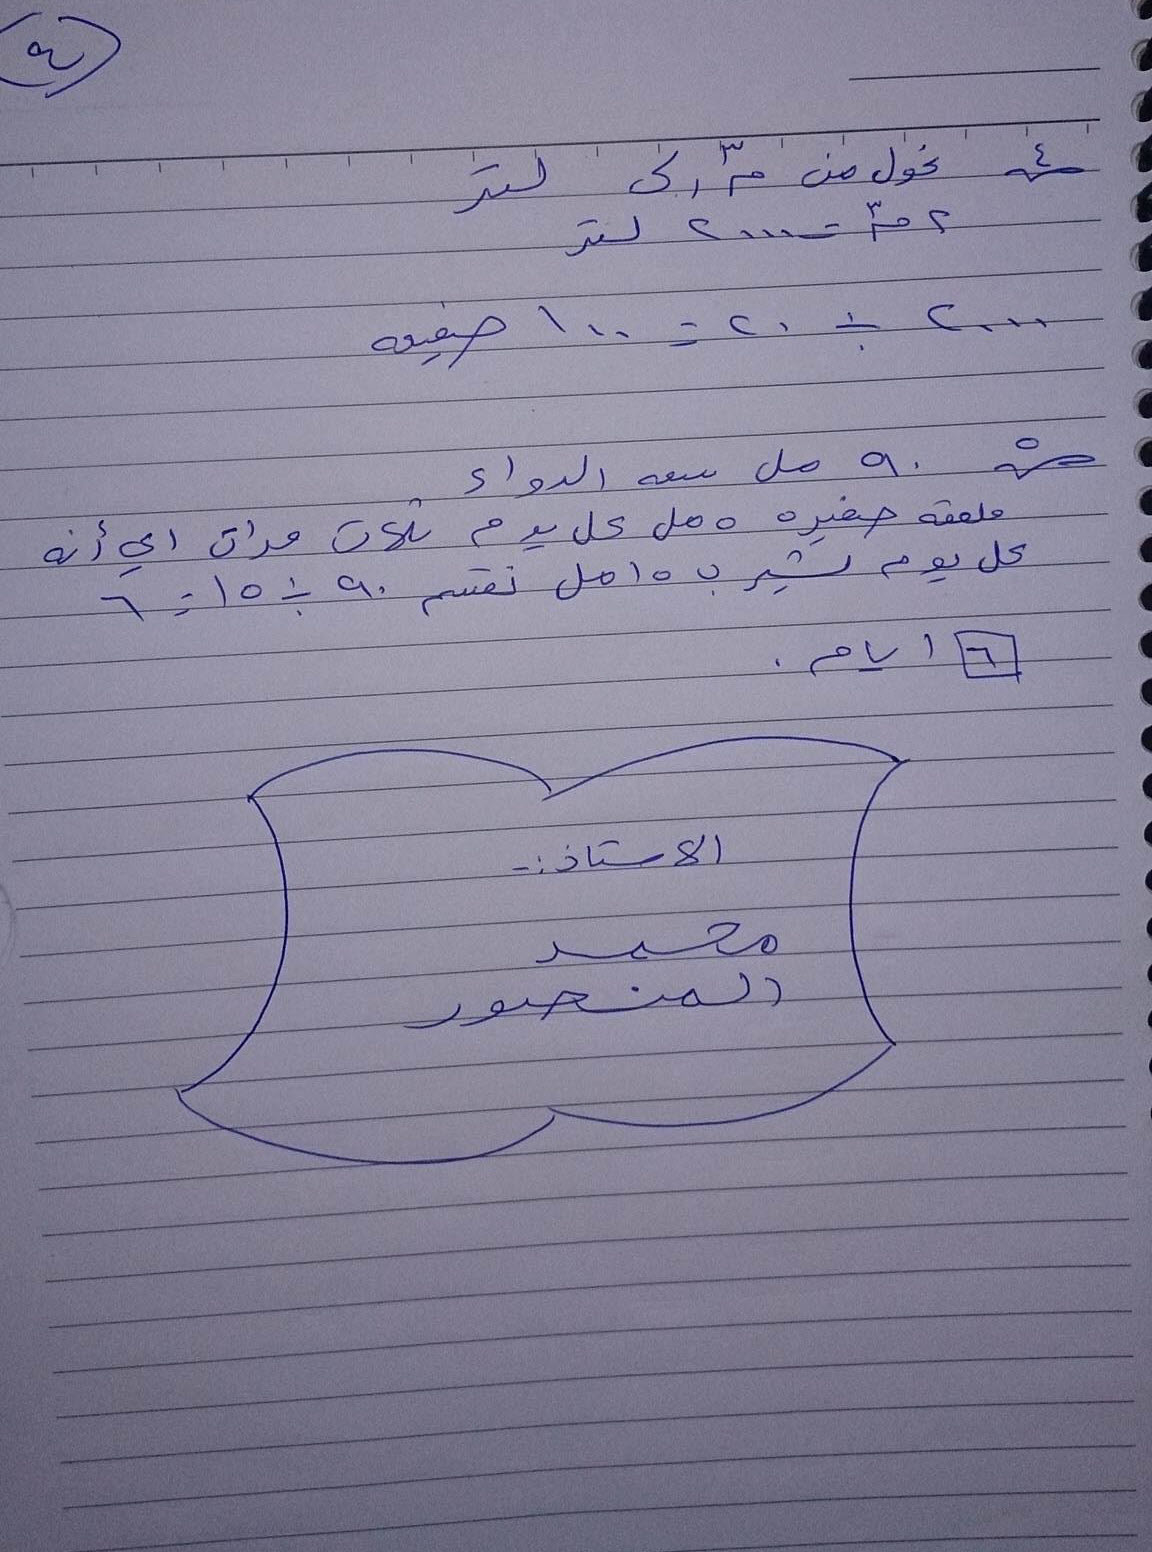 س٤ نحول من م٣ الى لتر
٢ م٣ = ٢٠٠٠ لتر
٢٠٠٠ ÷ ٢٠ = ١٠٠ صفيحه
س٥ ٩٠ مل سعه الدواء
ملعقه صغيره ٥ مل كل يوم ثلاث مرات اي أنه
كل يوم يشرب ١٥ مل نقسم ٩٠ ÷ ١٥ = ٦
٦ ايام .
الاستاذ :-
محمد
المنصور